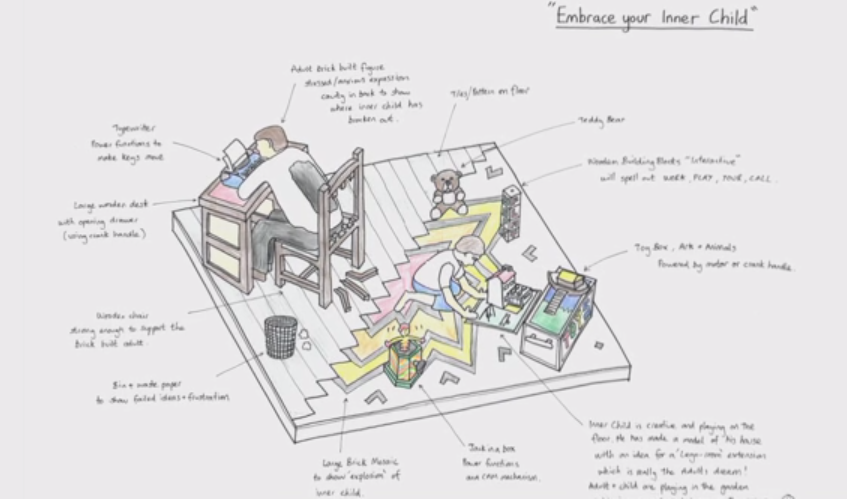 "Embrace your Inner Child"
Adult Brick built figure
stressed/anxious expression
cavity in back to show
where inner child has
broken out.
Tiles/Pattern on floor
Teddy Bear
Typewriter
Power functions to
make keys move
Wooden Building Blocks "Interactive"
will spell out WORK, PLAY, YOUR, CALL.
Large wooden desk
with opening drawer
(using crank handle)
Toy Box, Ark + Animals
Powered by motor or crank handle.
Wooden chair
strong enough to support the
Brick built adult.
Bin + waste paper
to show failed ideas + frustration
Large Brick Mosaic
to show 'explosion' of
inner child.
Jack in a box
Power functions
and CAM mechanism.
Inner Child is creative and playing on the
floor. He has made a model of his house
with an idea for a 'Lego-room' extension
which is really the Adults dream!
Adult + child are playing in the garden